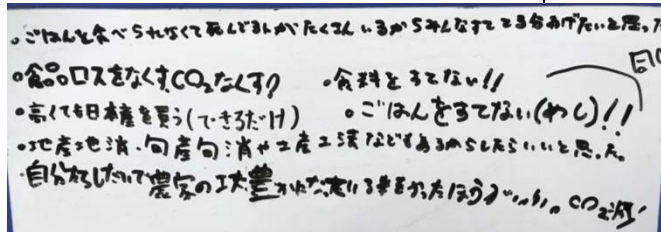 ・ごはんを食べられなくて死んどる人がたくさんいるからみんなすててる分あげたいと思った
・食品ロスをなくす,CO₂なくす? ・食料をすてない!!
・高くても日本産を買う(できるだけ) ・ごはんをすてない(めし)!!
・地産地消・旬産旬消や工産工消などもあるからしたらいいと思った。
・自分 農家の 豊か いる かったほうが CO₂減